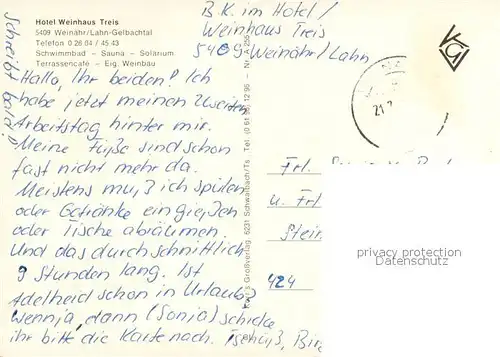 Hotel Weinhaus Treis
5409 Weinähr/Lahn-Gelbachtal
Telefon 0 26 04 / 45 43
Schwimmbad – Sauna – Solarium
Terrassencafé – Eig. Weinbau
B.K. im Hotel/
Weinhaus Treis
5409 Weinähr/Lahn
Schreibt bald!
Hallo, Ihr beiden! Ich
habe jetzt meinen zweiten
Arbeitstag hinter mir.
Meine Füße sind schon
fast nicht mehr da.
Meistens muß ich spülen
oder Getränke eingießen
oder Tische abräumen.
Und das durchschnittlich
9 Stunden lang. Ist
Adelheid schon in Urlaub?
Wenn ja, dann (Sonja) schicke
ihr bitte die Karte nach. Tschüß,
Großverlag, 6231 Schwalbach/Ts.
21.
Frl.
u. Frl.
Stein
424
privacy protection
Datenschutz